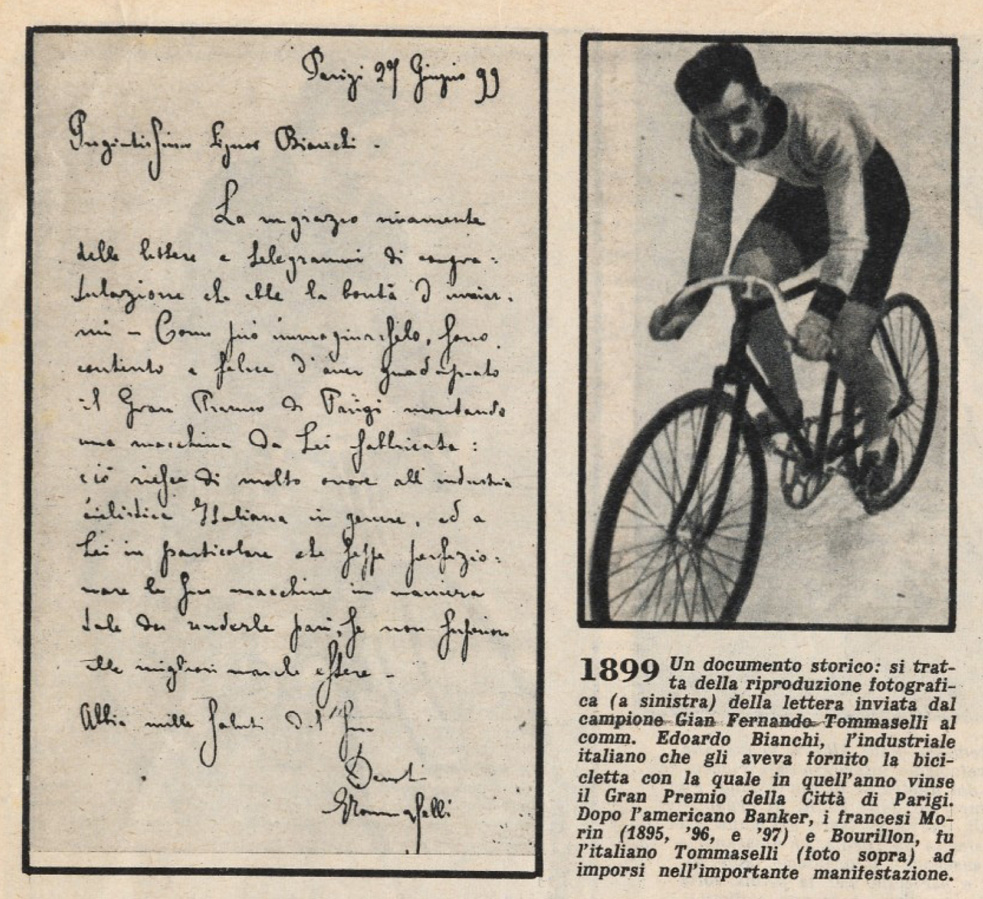 Parigi 27 Giugno 99
Pregiatissimo Signor Bianchi -
La ringrazio vivamente
delle lettere e telegrammi di congra:
tulazione che ebbe la bontà d'inviar.
mi - Come può immaginarselo, sono
contento e felice d'aver guadagnato
il Gran Premio di Parigi montando
una macchina da Lei fabbricata:
ciò riesce di molto onore all'industria
ciclistica Italiana in genere, ed a
Lei in particolare che seppe perfezio:
nare le sue macchine in maniera
tale da renderle pari, se non superiori
alle migliori marche estere -
Abbia mille saluti dal suo
Devot.
GTommaselli
1899 Un documento storico: si trat-
ta della riproduzione fotografi-
ca (a sinistra) della lettera inviata dal
campione Gian Fernando Tommaselli al
comm. Edoardo Bianchi, l'industriale
italiano che gli aveva fornito la bici-
cletta con la quale in quell'anno vinse
il Gran Premio della Città di Parigi.
Dopo l'americano Banker, i francesi Mo-
rin (1895, '96, e '97) e Bourillon, fu
l'italiano Tommaselli (foto sopra) ad
imporsi nell'importante manifestazione.